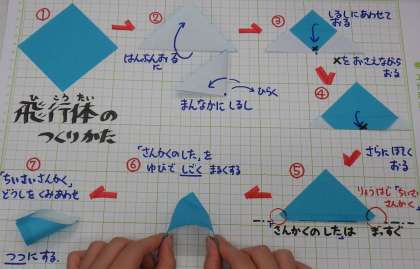 ①
②
はんぶんおる
に
ひらく
まんなかに しるし
③
しるしにあわせて
おる
×をおさえながら
おる
飛行体の
ひ こう たい
つくりかた
④
さらにほそく
おる
⑤
りょうはじ「ちいさい
さんかく」
「さんかくのした」は まっすぐ
⑥
「さんかくのした」を
ゆびで しごく まるくする
⑦
「ちいさいさんかく」
どうしをくみあわせ
つつにする.